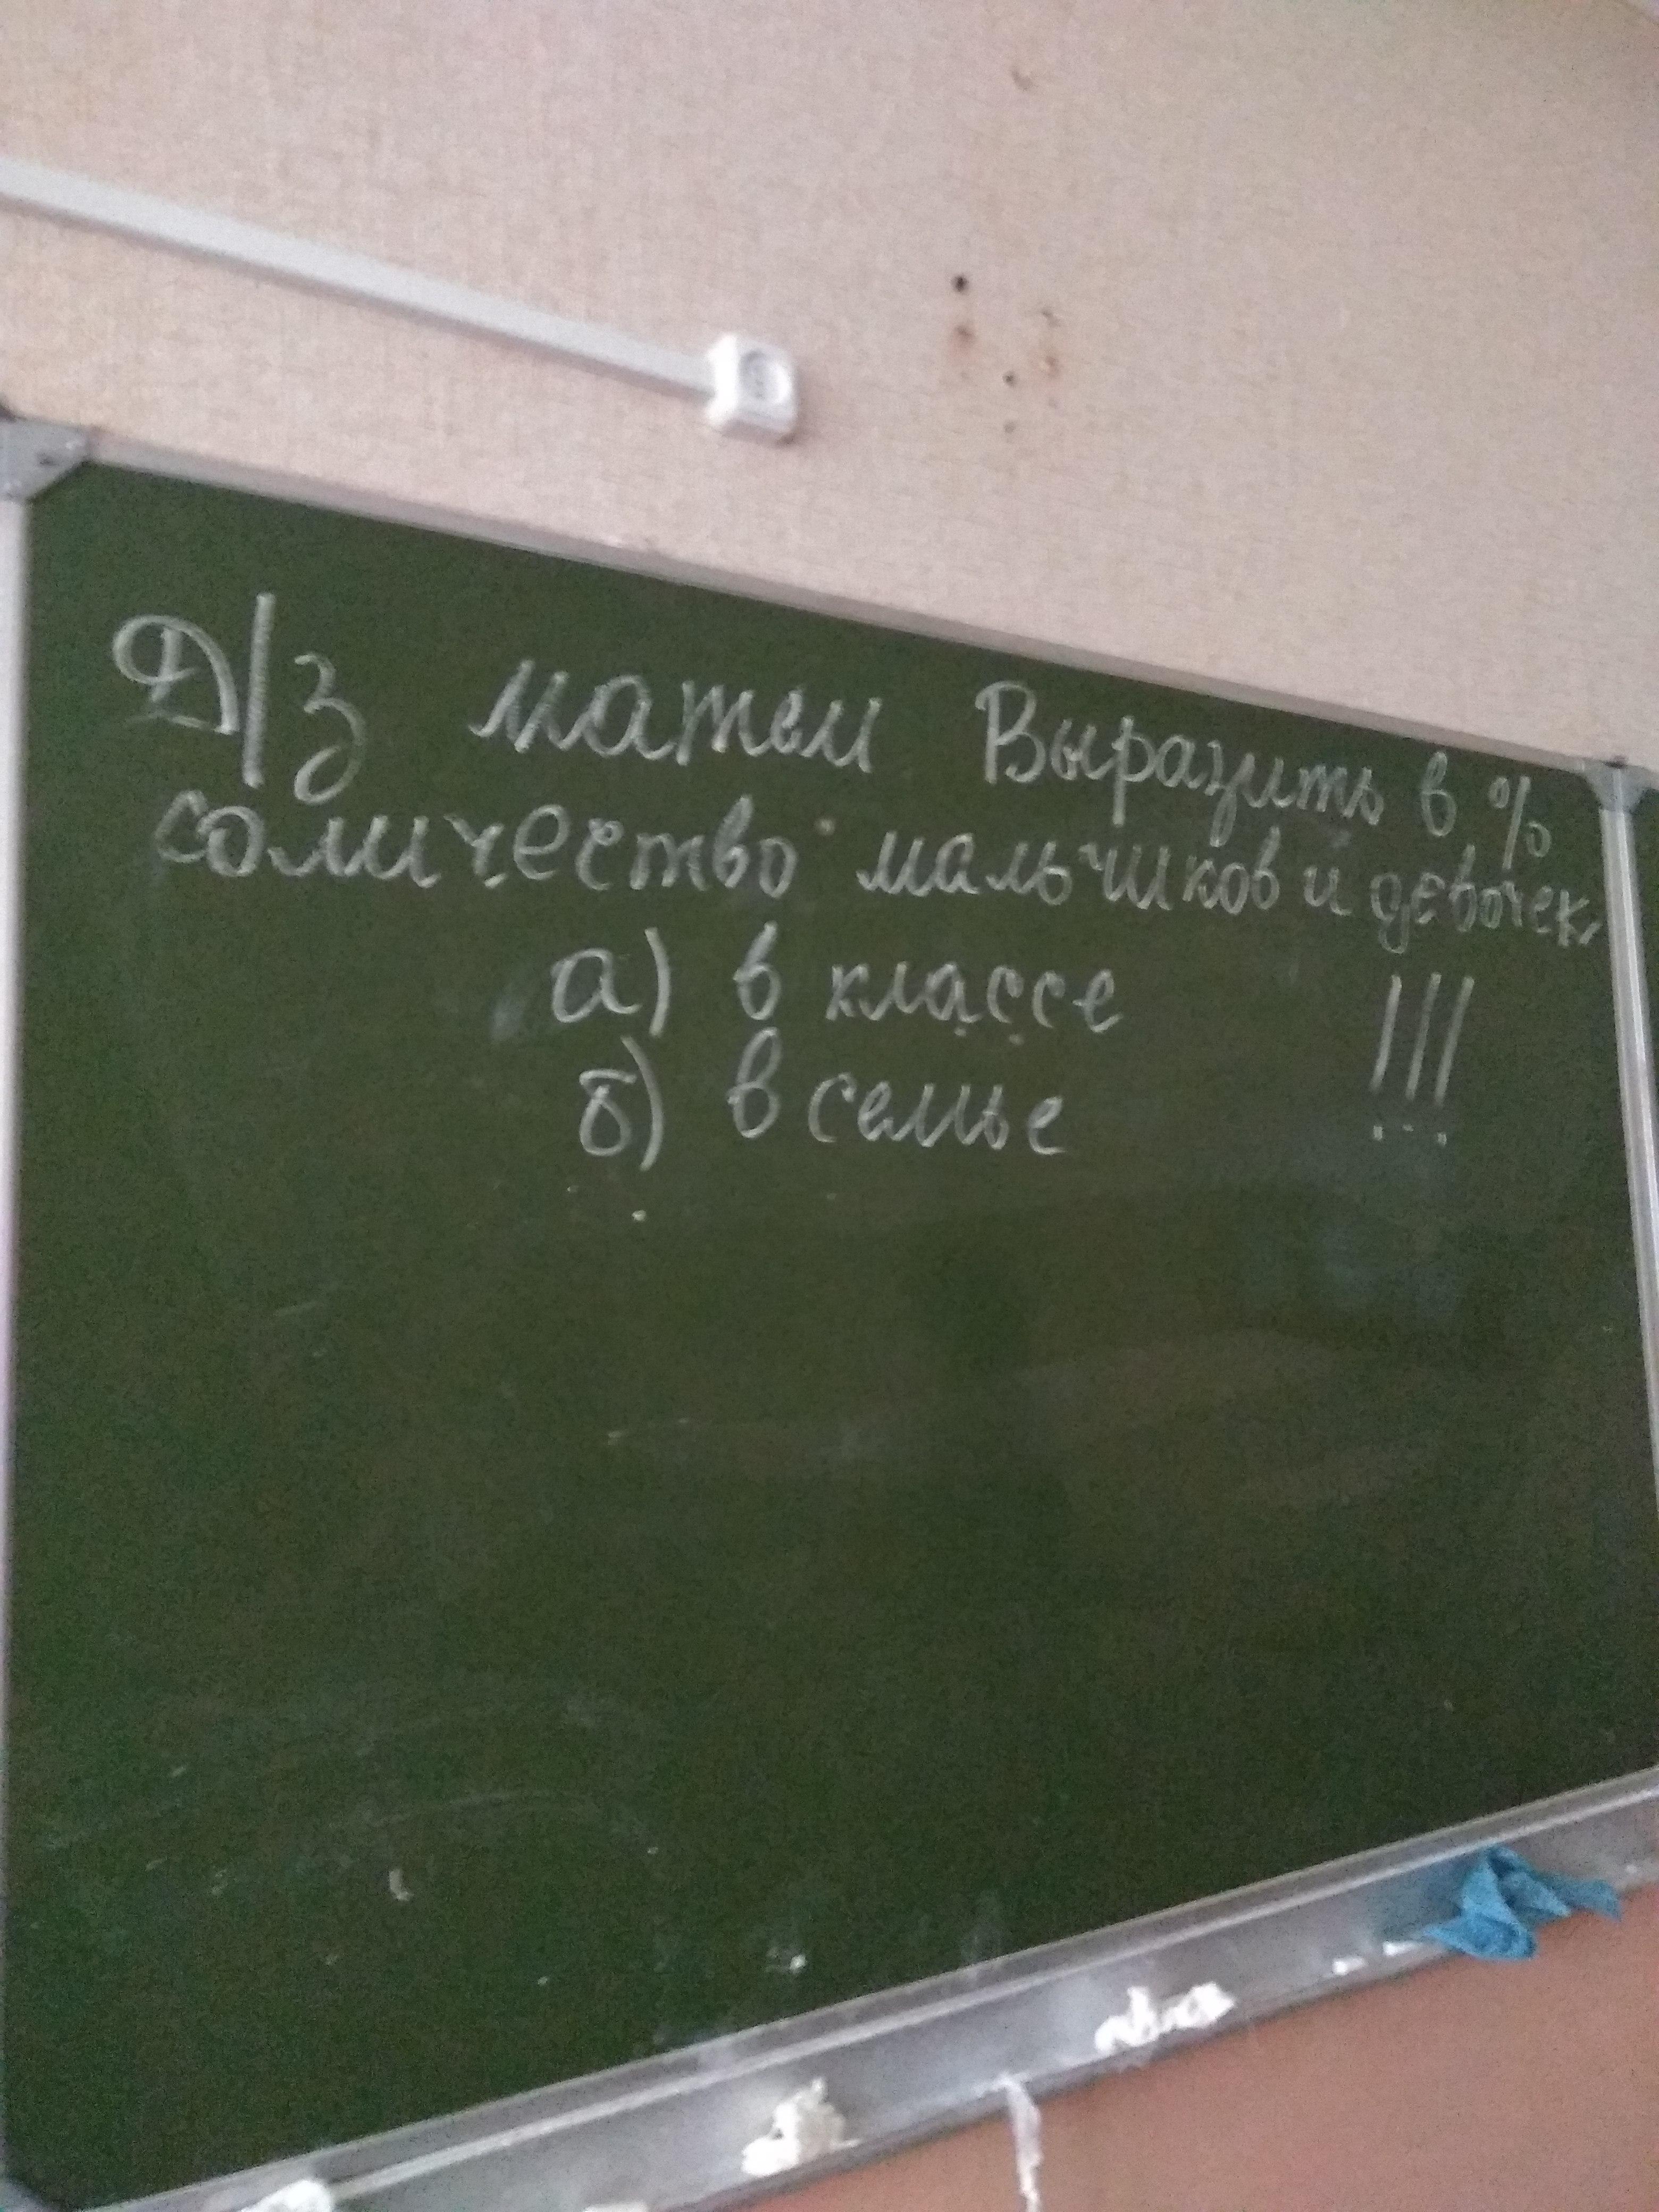 Д/з матем Выразить в %
количество мальчиков и девочек
а) в классе !!!
б) в семье